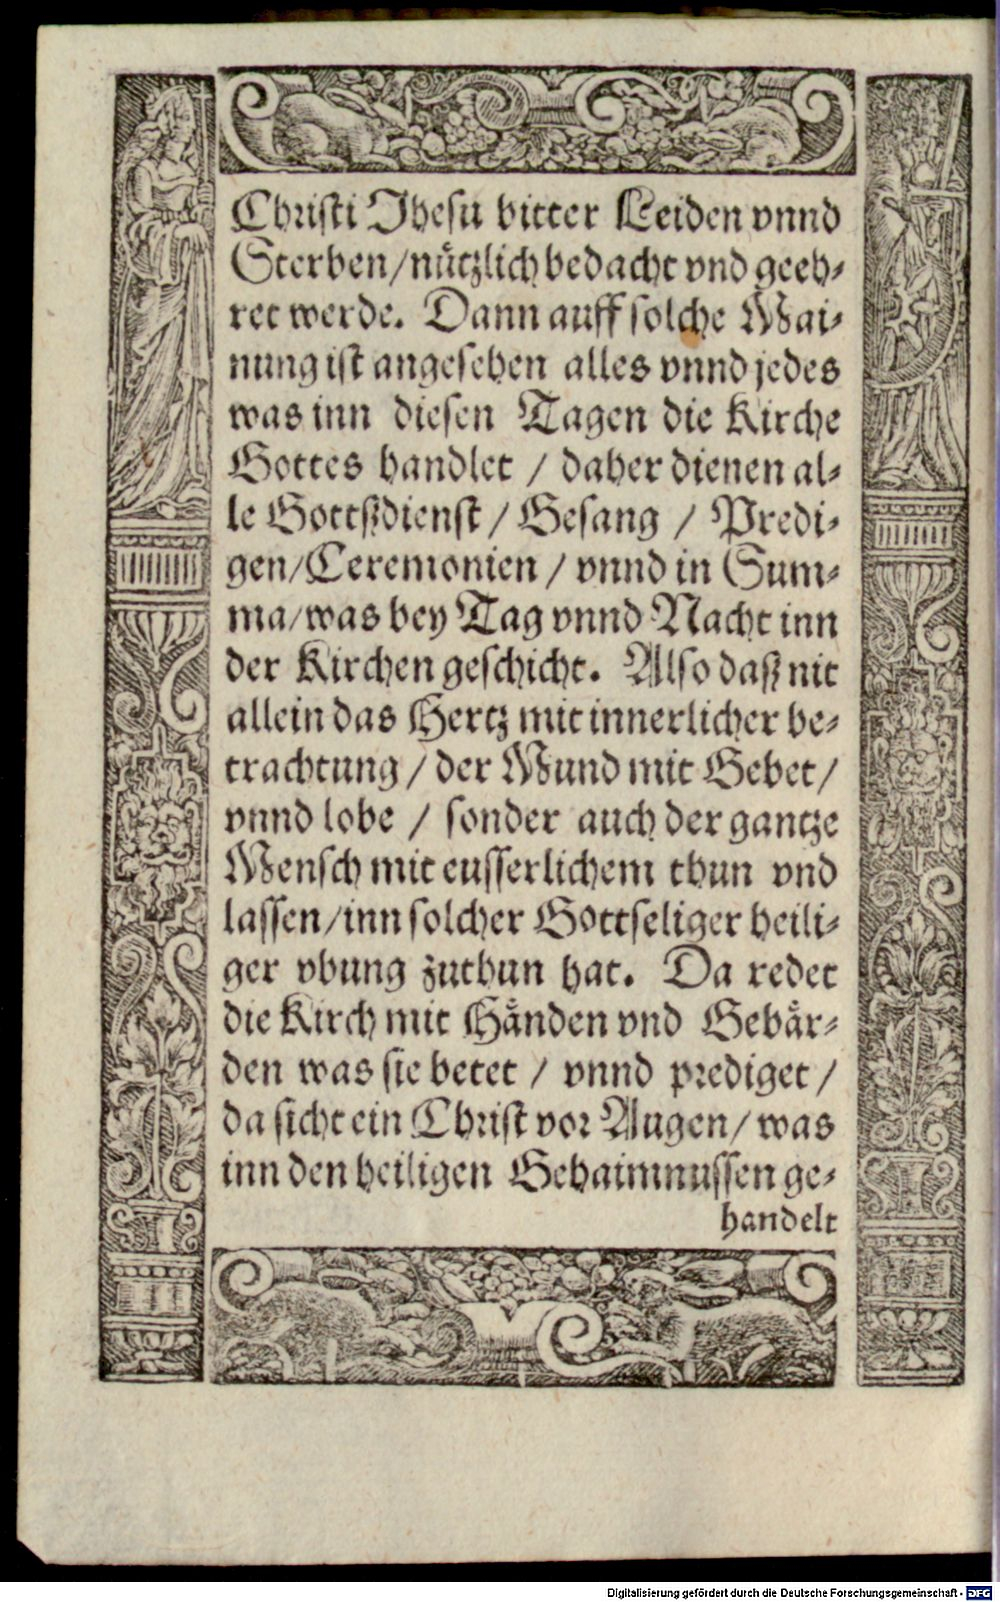 Christi Jhesu bitter Leiden vnnd
Sterben/nützlich bedacht vnd geeh⸗
ret werde. Dann auff solche Mai⸗
nung ist angesehen alles vnnd jedes
was inn diesen Tagen die Kirche
Gottes handlet / daher dienen al⸗
le Gottsdienst / Gesang / Predi⸗
gen/Ceremonien / vnnd in Sum⸗
ma/was bey Tag vnnd Nacht inn
der Kirchen geschicht. Also daß nit
allein das Hertz mit innerlicher be⸗
trachtung / der Mund mit Gebet/
vnnd lobe / sonder auch der gantze
Mensch mit eusserlichem thun vnd
lassen/inn solcher Gottseliger heili⸗
ger vbung zuthun hat. Da redet
die Kirch mit Händen vnd Gebär⸗
den was sie betet / vnnd prediget /
da sicht ein Christ vor Augen/ was
inn den heiligen Gehaimnussen ge⸗
handelt
Digitalisierung gefördert durch die Deutsche Forschungsgemeinschaft - DFG